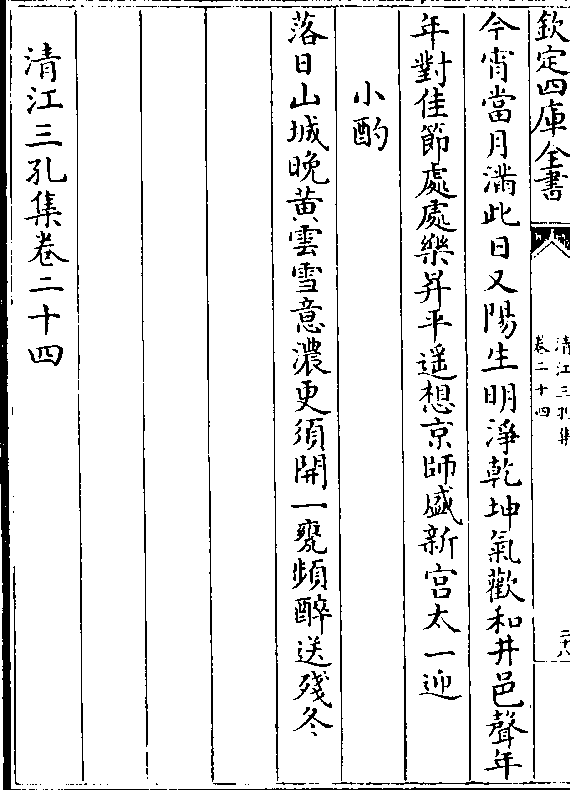 欽定四庫全書
清江三孔集
卷二十四
二十八
今宵當月滿此日又陽生明淨乾坤氣歡和井邑聲年
年對佳節處處樂昇平遥想京師盛新宫太一迎
小酌
落日山城晚黄雲雪意濃更須開一甕頻醉送殘冬
清江三孔集卷二十四